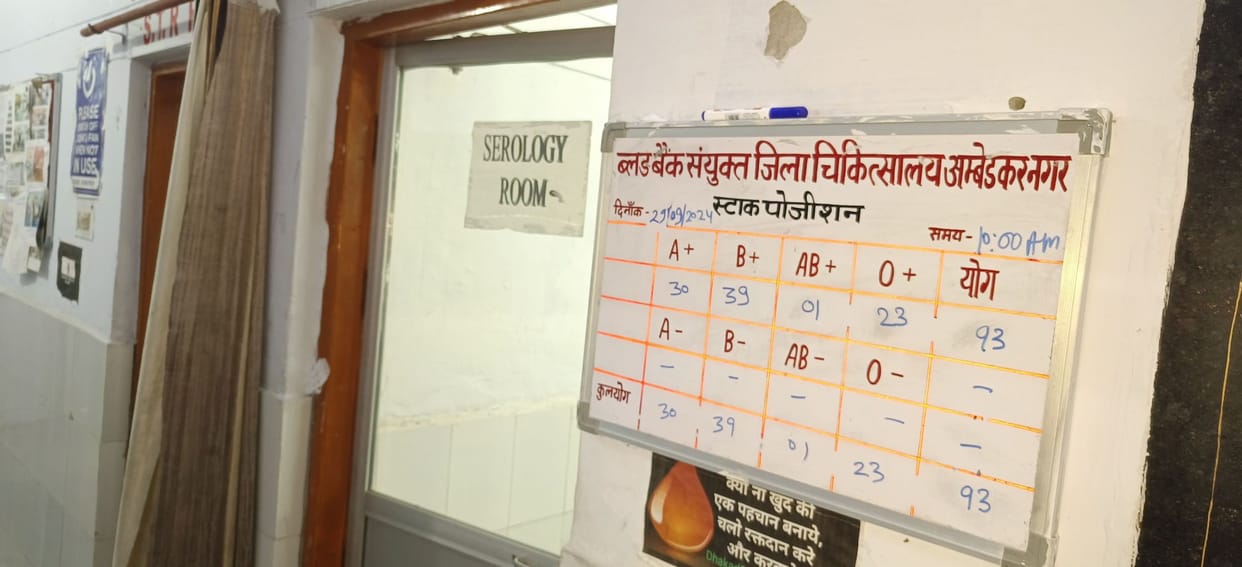 S.T.R
PLEASE
WHEN NOT
IN USE
SEROLOGY
ROOM
ब्लड बैंक संयुक्त जिला चिकित्सालय अम्बेडकरनगर
स्टाक पोजीशन
दिनाँक - 29/09/2024
समय - 10:00 AM
A+ B+ AB+ O+ योग
30 39 01 23 93
A- B- AB- O- -
- - - - -
कुलयोग 30 39 01 23 93
क्यों ना खुद की
एक पहचान बनाये,
चलो रक्तदान करे
और